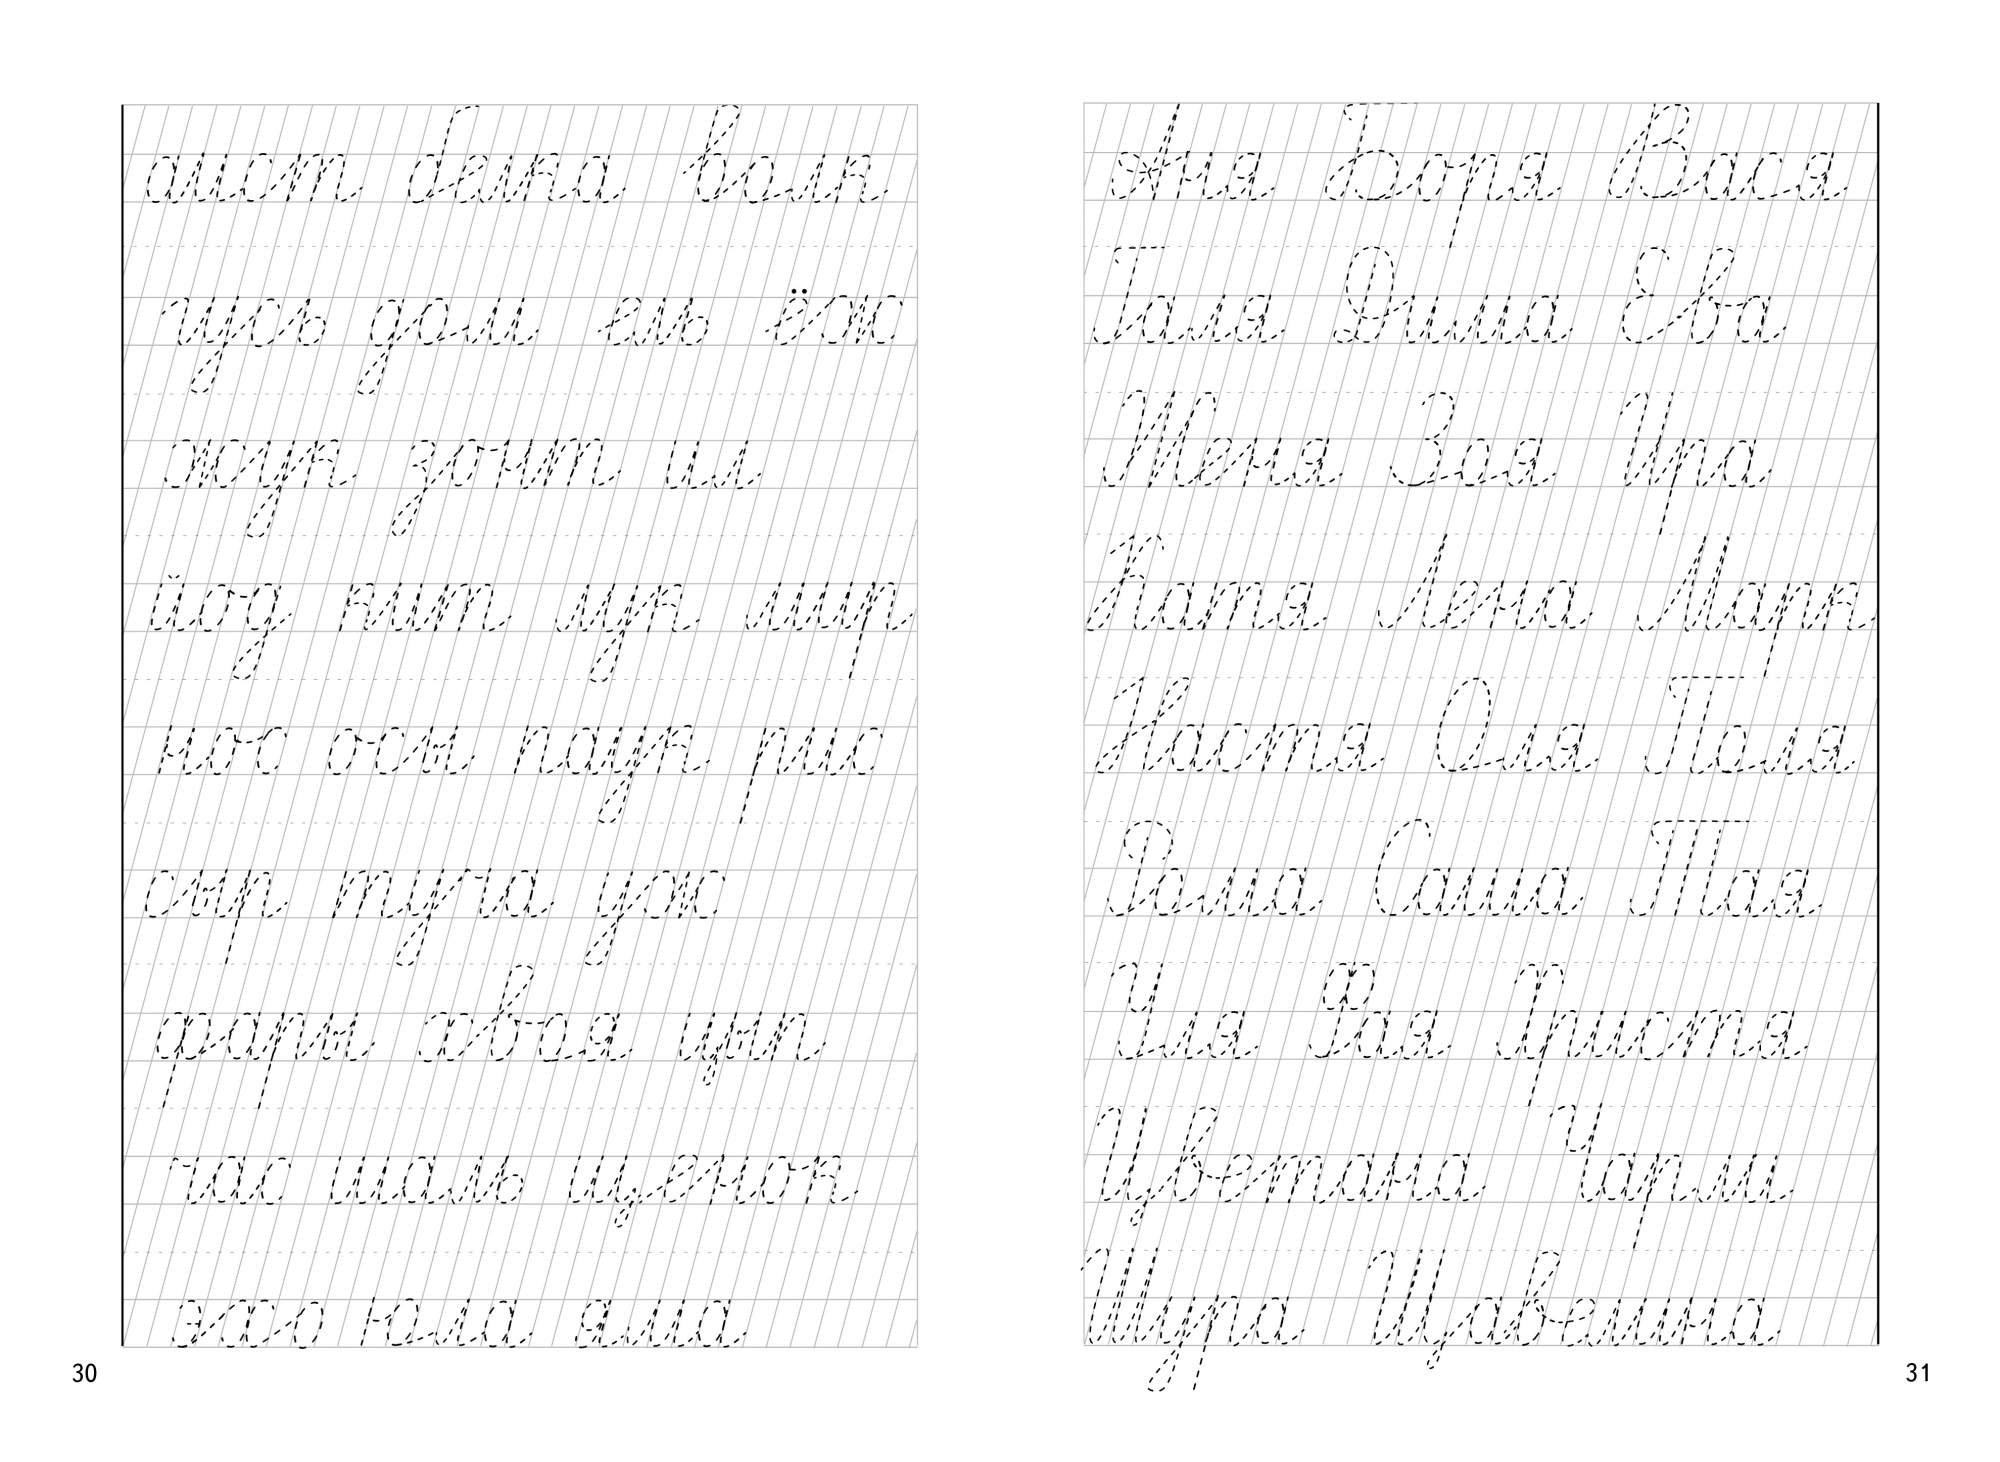 аист белка волк
гусь дом ель ёж
жук зонт ил
йод кит лук мир
нос осы паук рис
сыр туча уж
фары хвоя
час шаль щенок
эхо юла яма
30
Аня Боря Вася
Галя Дима Ева
Женя Зоя Ира
Катя Лена Марк
Настя Оля Поля
Рома Саша Тая
Уля Фая Христя
Цветана Чарли
Шура
31